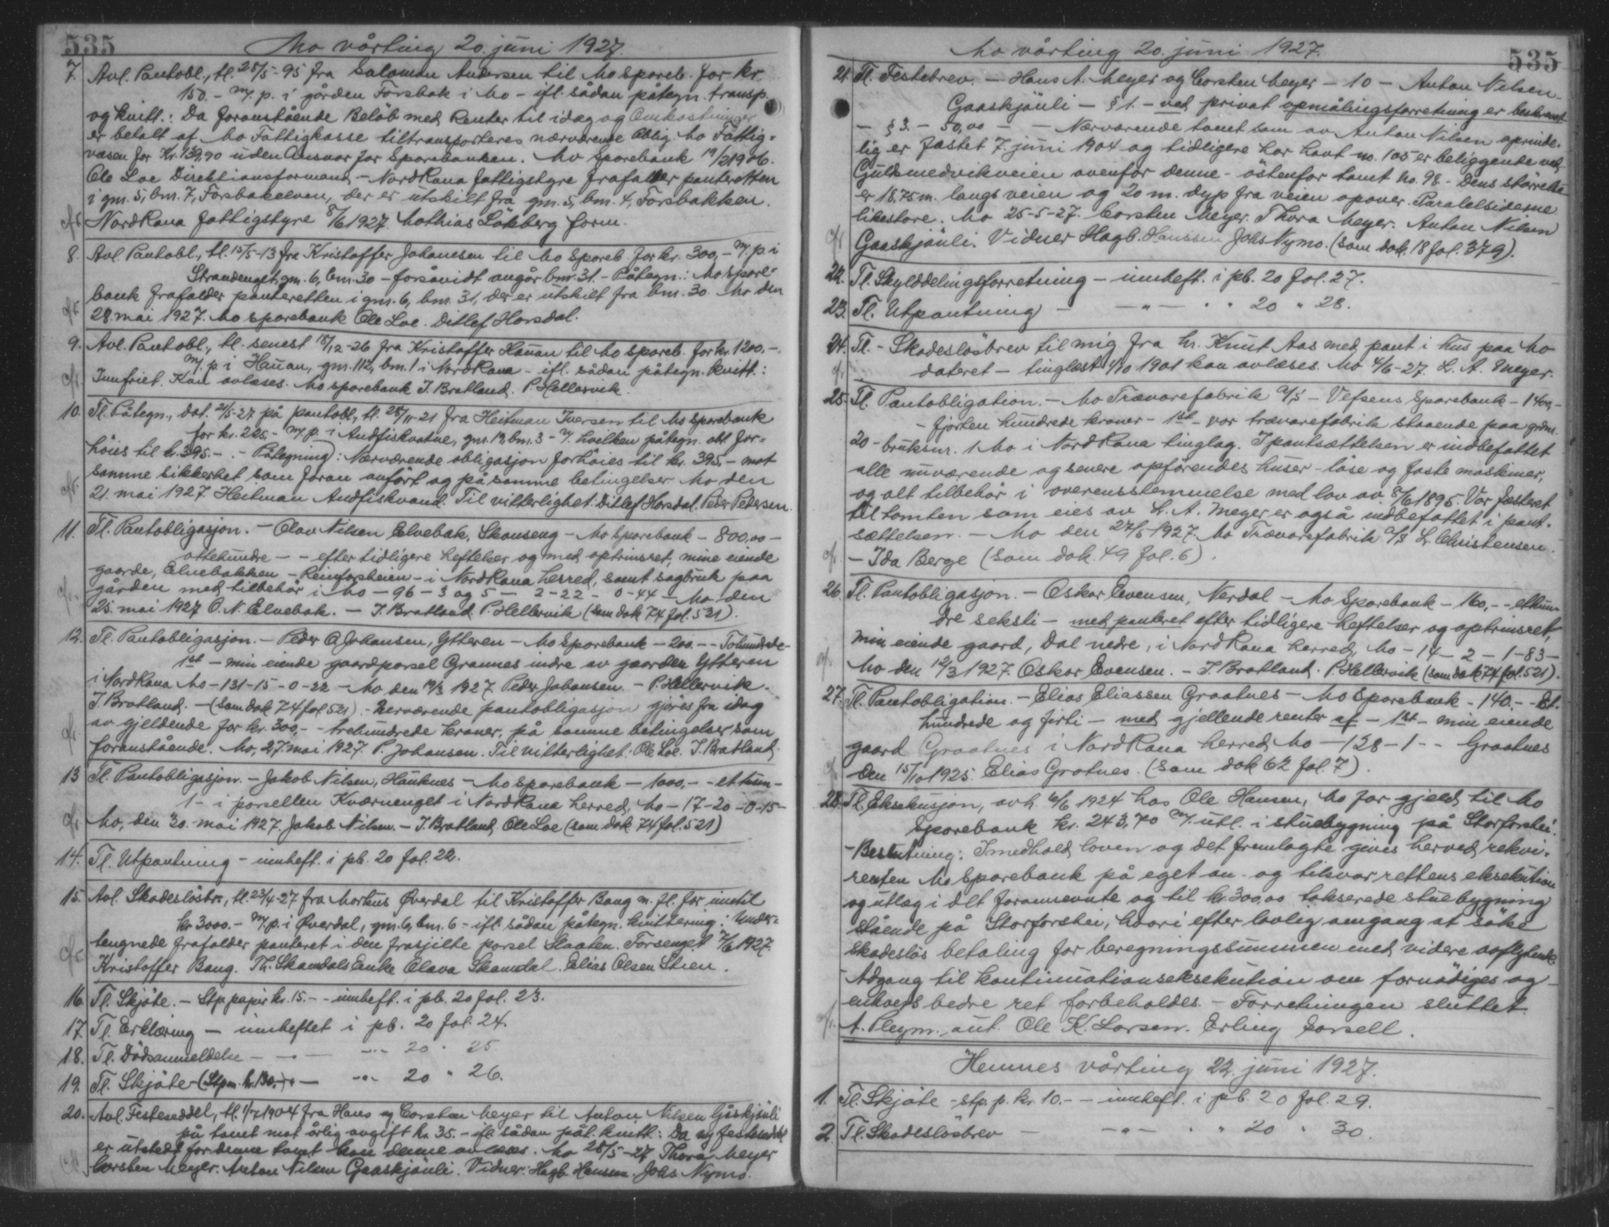 535
Mo vårting 20. juni 1927.
7. Avl. Pantobl., tl. 28/5-95 fra Salomon Andersen til Mo Spareb. for kr.
150.- m/ p. i gården Forsbak i Mo - ifl. sådan påtegn. transp.
og kvitt.: Da foranstående Beløb med Renter til idag og Omkostninger
er betalt af Mo Fattigkasse tiltransporteres nærværende Oblig. Mo Fattig-
væsen for Kr. 139,90 uden Ansvar for Sparebanken. Mo Sparebank 19/2 1906.
Ole Loe Direktionsformand - Nord Rana fattigstyre frafaller panteretten
i gm. 5, bm. 7, Forsbakelven, der er utskilt fra gm. 5, bm. 4, Forsbakken.
Nord Rana fattigstyre 8/6 1927 Mathias Løkberg form.
8. Avl. Pantobl., tl. 15/5-13 fra Kristoffer Johansen til Mo Spareb. for kr. 300,- m/ p. i
Strandenget, gm. 6, bm. 30 - forsåvidt angår bm. 31. - Påtegn.: Mo spare-
bank frafalder panteretten i gm. 6, bm. 31, der er utskilt fra bm. 30. Mo den
28. mai 1927. Mo sparebank Ole Loe. Ditlef Horsdal.
9. Avl. Pantobl., tl. senest 15/12-26 fra Kristoffer Hauan til Mo spareb. for kr. 1200.-
m/ p. i Hauan, gm. 112, bm. 1 i Nord Rana - ifl. sådan påtegn. kvitt:
Innfriet. Kan avlæses. Mo sparebank I. Bratland. P. Hellervik.
10. Tl. Påtegn., dat. 21/5-27 på pantobl., tl. 28/11-21 fra Heitman Iversen til Mo Sparebank
for kr. 225.- m/ p. i Andfiskvatne, gm. 13, bm. 3 - v/ hvelken påtegn. obl. for-
høies til kr. 395.- - Påtegning: Nærværende obligasjon forhøies til kr. 395,- mot
samme sikkerhet som foran anført og på samme betingelser Mo den
21. mai 1927 Heitman Andfiskvand. Til vitterlighet: Ditlef Horsdal. Peder Pedersen.
11. Tl. Pantobligasjon. - Olav Nilsen Elvebak, Skonseng - Mo Sparebank - 800,00 -
ottehundre - - efter tidligere heftelser og med optrinsret, mine eiende
gaarde, Elvebakken - Reinforsheien - i Nord Rana herred, samt sagbruk paa
gården med tilbehør i Mo - 96 - 3 og 5 - 2-22 - 0-44 - Mo den
25. mai 1927 O. N. Elvebak. - I. Bratland P. Hellervik (som dok 74 fol. 521).
12. Tl. Pantobligasjon. - Peder A. Johansen, Ytteren - Mo Sparebank - 200.- - Tohundrede -
1st - min eiende gaardparsel Grannes indre av gaarden Ytteren
i Nord Rana Mo - 131 - 15 - 0 - 22 - Mo, den 19/3 1927. Peder Johansen - P. Hellervik.
I. Bratland. - (som dok 74 fol 521). - Nærværende pantobligasjon gjøres fra idag
av gjeldende for kr. 300,- - trehundrede kroner, på samme betingelser som
foranstående. Mo, 27. mai 1927. P. Johansen. Til vitterlighet: Ole Loe. I. Bratland
13 Tl. Pantobligasjon. - Jakob Nilsen, Hauknes - Mo Sparebank - 1000,- - et tusen -
1 - i parsellen Kvarnenget i Nord Rana herred, Mo - 17 - 20 - 0 - 15 -
Mo, den 30. mai 1927. Jakob Nilsen. - I. Bratland, Ole Loe (som dok 74 fol. 521)
14. Tl. Utpantning - innheft. i pb. 20 fol. 22.
15. Avl. Skadesløsbr., tl. 23/4-27 fra Markus Øverdal til Kristoffer Bang m. fl. for inntil
kr. 3000.- m/ p. i Øverdal, gm. 6, bm. 6 - ifl. sådan påtegn. kvittering: Under-
tengnede frafalder panteret i den fraskilte parsel Slaaten. Forsenget 7/6 1927.
Kristoffer Bang. Th. Skamdals Enke Elava Skamdal. Elias Olsen Stien.
16. Tl. Skjøte. - Stp. papir kr. 15.- - innheft. i pb. 20 fol. 23.
17. Tl. Erklæring - innheftet i pb. 20 fol. 24.
18. Tl. Dødsanmeldelse - - " - - " - 20 " 25
19. Tl. Skjøte (Stpm. kr. 130.-) - - " - 20 " 26.
20. Avl. Festeseddel, tl. 1/7 1904 fra Hans og Carsten Meyer til Anton Nilsen Gåskjønli
på tomt mot årlig avgift kr. 35.- ifl. sådan påt. kvitt: Da ny festeseddel
er utstedt for denne tomt kan denne avlæses. Mo 28/5-27 Thora Meyer
Carsten Meyer. Anton Nilsen Gaaskjønli. Vidner: Hagb. Hanssen Johs Nymo.
535
Mo vårting 20. juni 1927.
21. Tl. Festebrev. - Hans A. Meyer og Carsten Meyer - 10 - Anton Nilsen
Gaaskjønli - § 1. - ved privat opmålingsforretning er bestemt
- § 3. - 50,00 - - Nærværende tomt som av Anton Nilsen oprinde-
lig er fæstet 7. juni 1904 og tidligere har havt no. 105 er beliggende ved
Guldsmedvikveien ovenfor denne - østenfor tomt no. 98 - Dens størrelse
er 18.75 m. langs veien og 20 m. dyp fra veien opover. Paralelsiderne
likestore. Mo 25-5-27. Carsten Meyer. Thora Meyer. Anton Nilsen
Gaaskjønli. Vidner Hagb. Hanssen Johs Nymo. (som dok. 18 fol. 379).
22. Tl. Skylddelingsforretning - innheft. i pb. 20 fol. 27.
23. Tl. Utpantning - - " - " " 20 " 28.
24. Tl. - Skadesløsbrev til mig fra hr. Knut Aas med pant i hus paa Mo
dateret - tinglæst 1/10 1901 kan avlæses. Mo 4/6-27. L. A. Meyer.
25. Tl. Pantobligation. - Mo Trævarefabrik A/S - Vefsens Sparebank - 1400,-
- fjorten hundrede kroner - 1st - vor trævarefabrik staaende paa grdnr.
20 - bruksnr. 1 Mo i Nord Rana tinglag. I pantsættelsen er indbefattet
alle nuværende og senere opførendes huser - løse og faste maskiner,
og alt tilbehør i overensstemmelse med lov av 8/6 1895. Vor festeret
til tomten som eies av L. A. Meyer er også indbefattet i pant-
sættelsen. - Mo den 27/5 1927. Mo Trævarefabrik A/S L. Christensen.
- Ida Berge (som dok. 49 fol. 6).
26. Tl. Pantobligasjon. - Oskar Evensen, Nerdal - Mo Sparebank - 160,- - etthun-
dre seksti - med panteret efter tidligere heftelser og optrinsret,
min eiende gaard, Dal nedre, i Nord Rana herred, Mo - 14 - 2 - 1-83 -
Mo den 12/3 1927. Oskar Evensen. - I. Bratland. P. Hellervik (som dok 74 fol. 521).
27. Tl. Pantobligation. - Elias Eliassen Graatnes - Mo Sparebank - 140.- - Et
hundrede og firti - med gjellende renter af - 1st - min eiende
gaard Graatnes i Nord Rana herred, Mo - 128 - 1 - - Graatnes
den 15/10 1925. Elias Grotnes. (som dok 62 fol. 7).
28. Tl. Eksekusjon, avh. 6/6 1924 hos Ole Hansen, Mo for gjeld til Mo
Sparebank kr. 243,70 m/ utl. i stuebygning på Storforshei.
- Beslutning: I medhold loven og det fremlagte gives herved rekvi-
renten Mo Sparebank på eget an- og tilsvar rettens eksekution
og utlæg i det forannevnte og til kr. 300,00 takserede stuebygning
stående på Storforshei, hvori efter lovlig omgang at søke
skadesløs betaling for beregningssummen med videre avflytende
Adgang til kontinuationseksekution om fornødiges og
enhvers bedre ret forbeholdes. - Forretningen sluttet.
A. Pleym, aut. Ole K. Larsen. Erling Corsell.
Hemnes vårting 22. juni 1927.
1. Tl. Skjøte - stp. p. kr. 10.- - innheft. i pb. 20 fol. 29.
2. Tl. Skadesløsbrev - - " - " " 20 " 30.